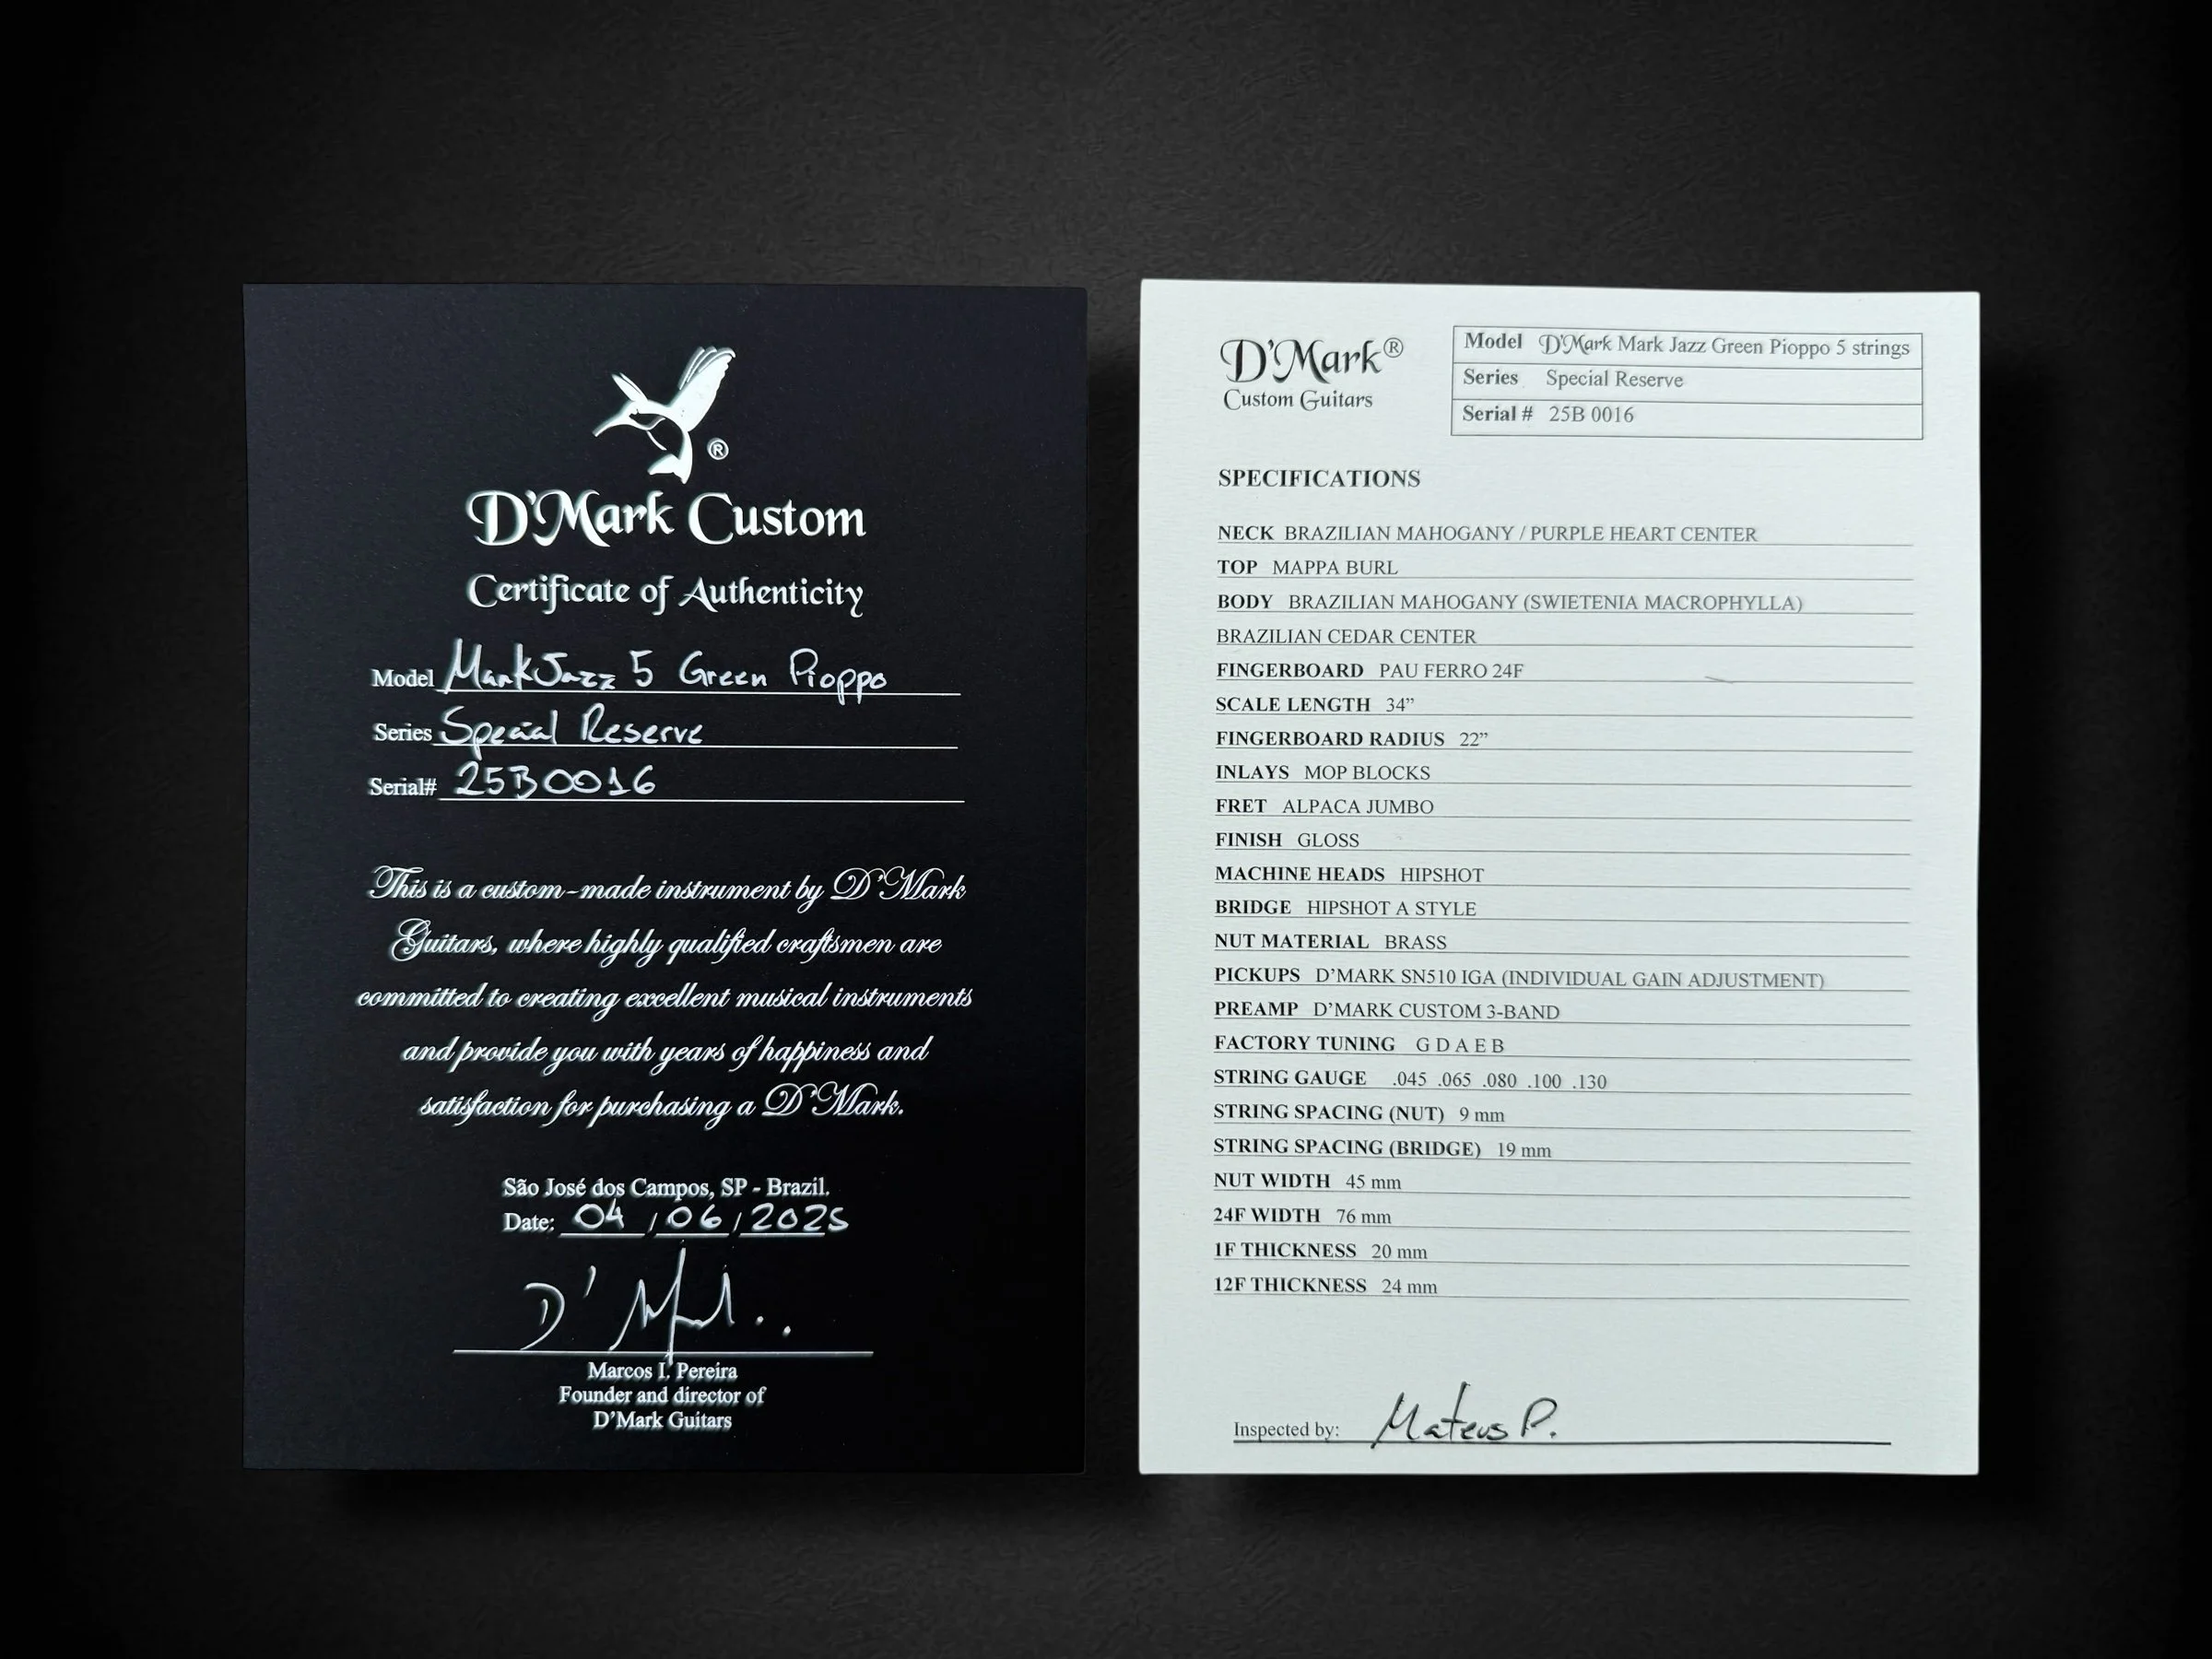 ®
D'Mark Custom
Certificate of Authenticity
Model MarkJazz 5 Green Pioppo
Series Special Reserve
Serial# 25B0016
This is a custom-made instrument by D'Mark
Guitars, where highly qualified craftsmen are
committed to creating excellent musical instruments
and provide you with years of happiness and
satisfaction for purchasing a D'Mark.
São José dos Campos, SP - Brazil.
Date: 04 / 06 / 2025
D' Mark..
Marcos I. Pereira
Founder and director of
D'Mark Guitars
D'Mark®
Custom Guitars
Model D'Mark Mark Jazz Green Pioppo 5 strings
Series Special Reserve
Serial # 25B 0016
SPECIFICATIONS
NECK BRAZILIAN MAHOGANY / PURPLE HEART CENTER
TOP MAPPA BURL
BODY BRAZILIAN MAHOGANY (SWIETENIA MACROPHYLLA)
BRAZILIAN CEDAR CENTER
FINGERBOARD PAU FERRO 24F
SCALE LENGTH 34”
FINGERBOARD RADIUS 22”
INLAYS MOP BLOCKS
FRET ALPACA JUMBO
FINISH GLOSS
MACHINE HEADS HIPSHOT
BRIDGE HIPSHOT A STYLE
NUT MATERIAL BRASS
PICKUPS D’MARK SN510 IGA (INDIVIDUAL GAIN ADJUSTMENT)
PREAMP D’MARK CUSTOM 3-BAND
FACTORY TUNING G D A E B
STRING GAUGE .045 .065 .080 .100 .130
STRING SPACING (NUT) 9 mm
STRING SPACING (BRIDGE) 19 mm
NUT WIDTH 45 mm
24F WIDTH 76 mm
1F THICKNESS 20 mm
12F THICKNESS 24 mm
Inspected by: Mateus P.